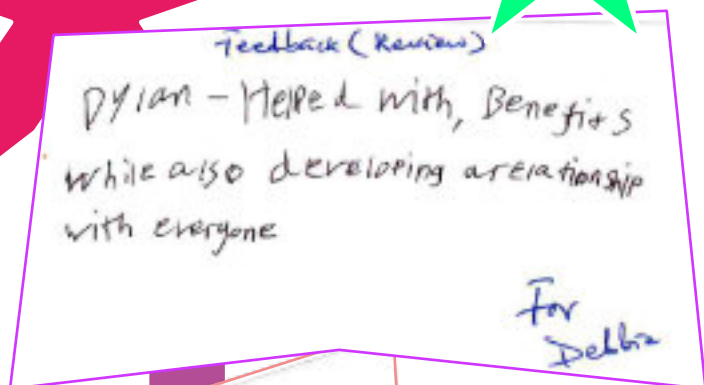 Feedback (Review)
Dylan - Helped with, Benefits
while also developing a relationship
with everyone
For
Debbie